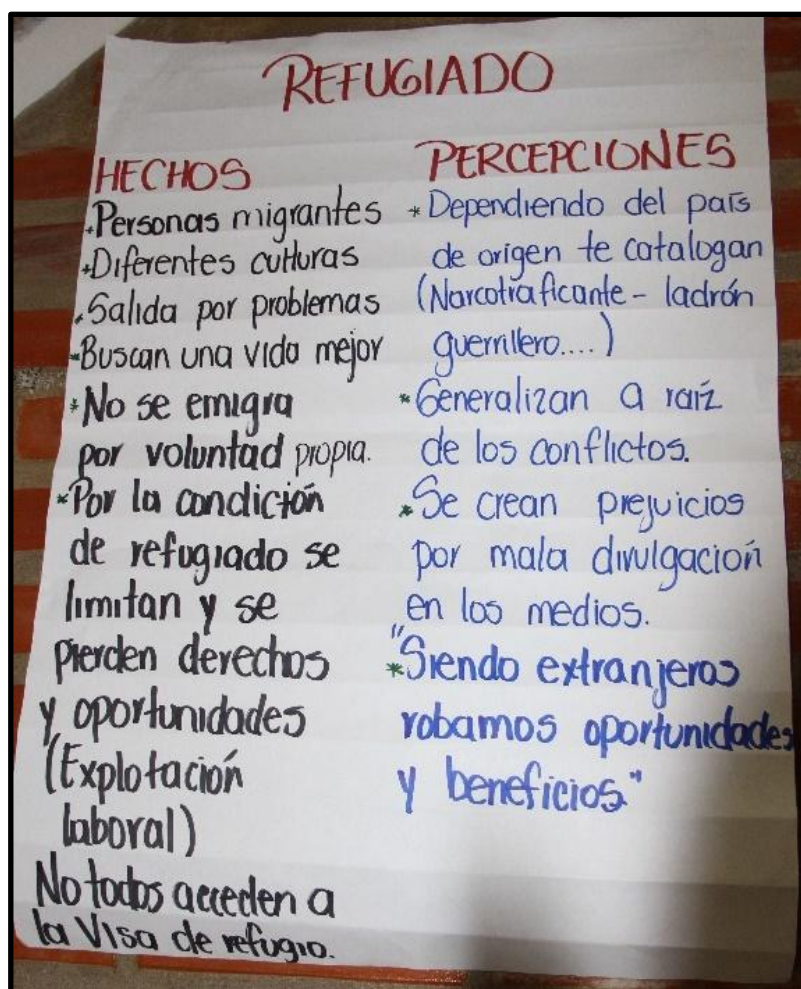 REFUGIADO
HECHOS
*Personas migrantes
*Diferentes culturas
*Salida por problemas
*Buscan una vida mejor
*No se emigra
por voluntad propia.
*Por la condición
de refugiado se
limitan y se
pierden derechos
y oportunidades
(Explotación
laboral)
No todos acceden a
la Visa de refugio.
PERCEPCIONES
*Dependiendo del país
de origen te catalogan
(Narcotraficante - ladrón
guerrillero....)
*Generalizan a raíz
de los conflictos.
*Se crean prejuicios
por mala divulgación
en los medios.
*"Siendo extranjeros
robamos oportunidades
y beneficios."